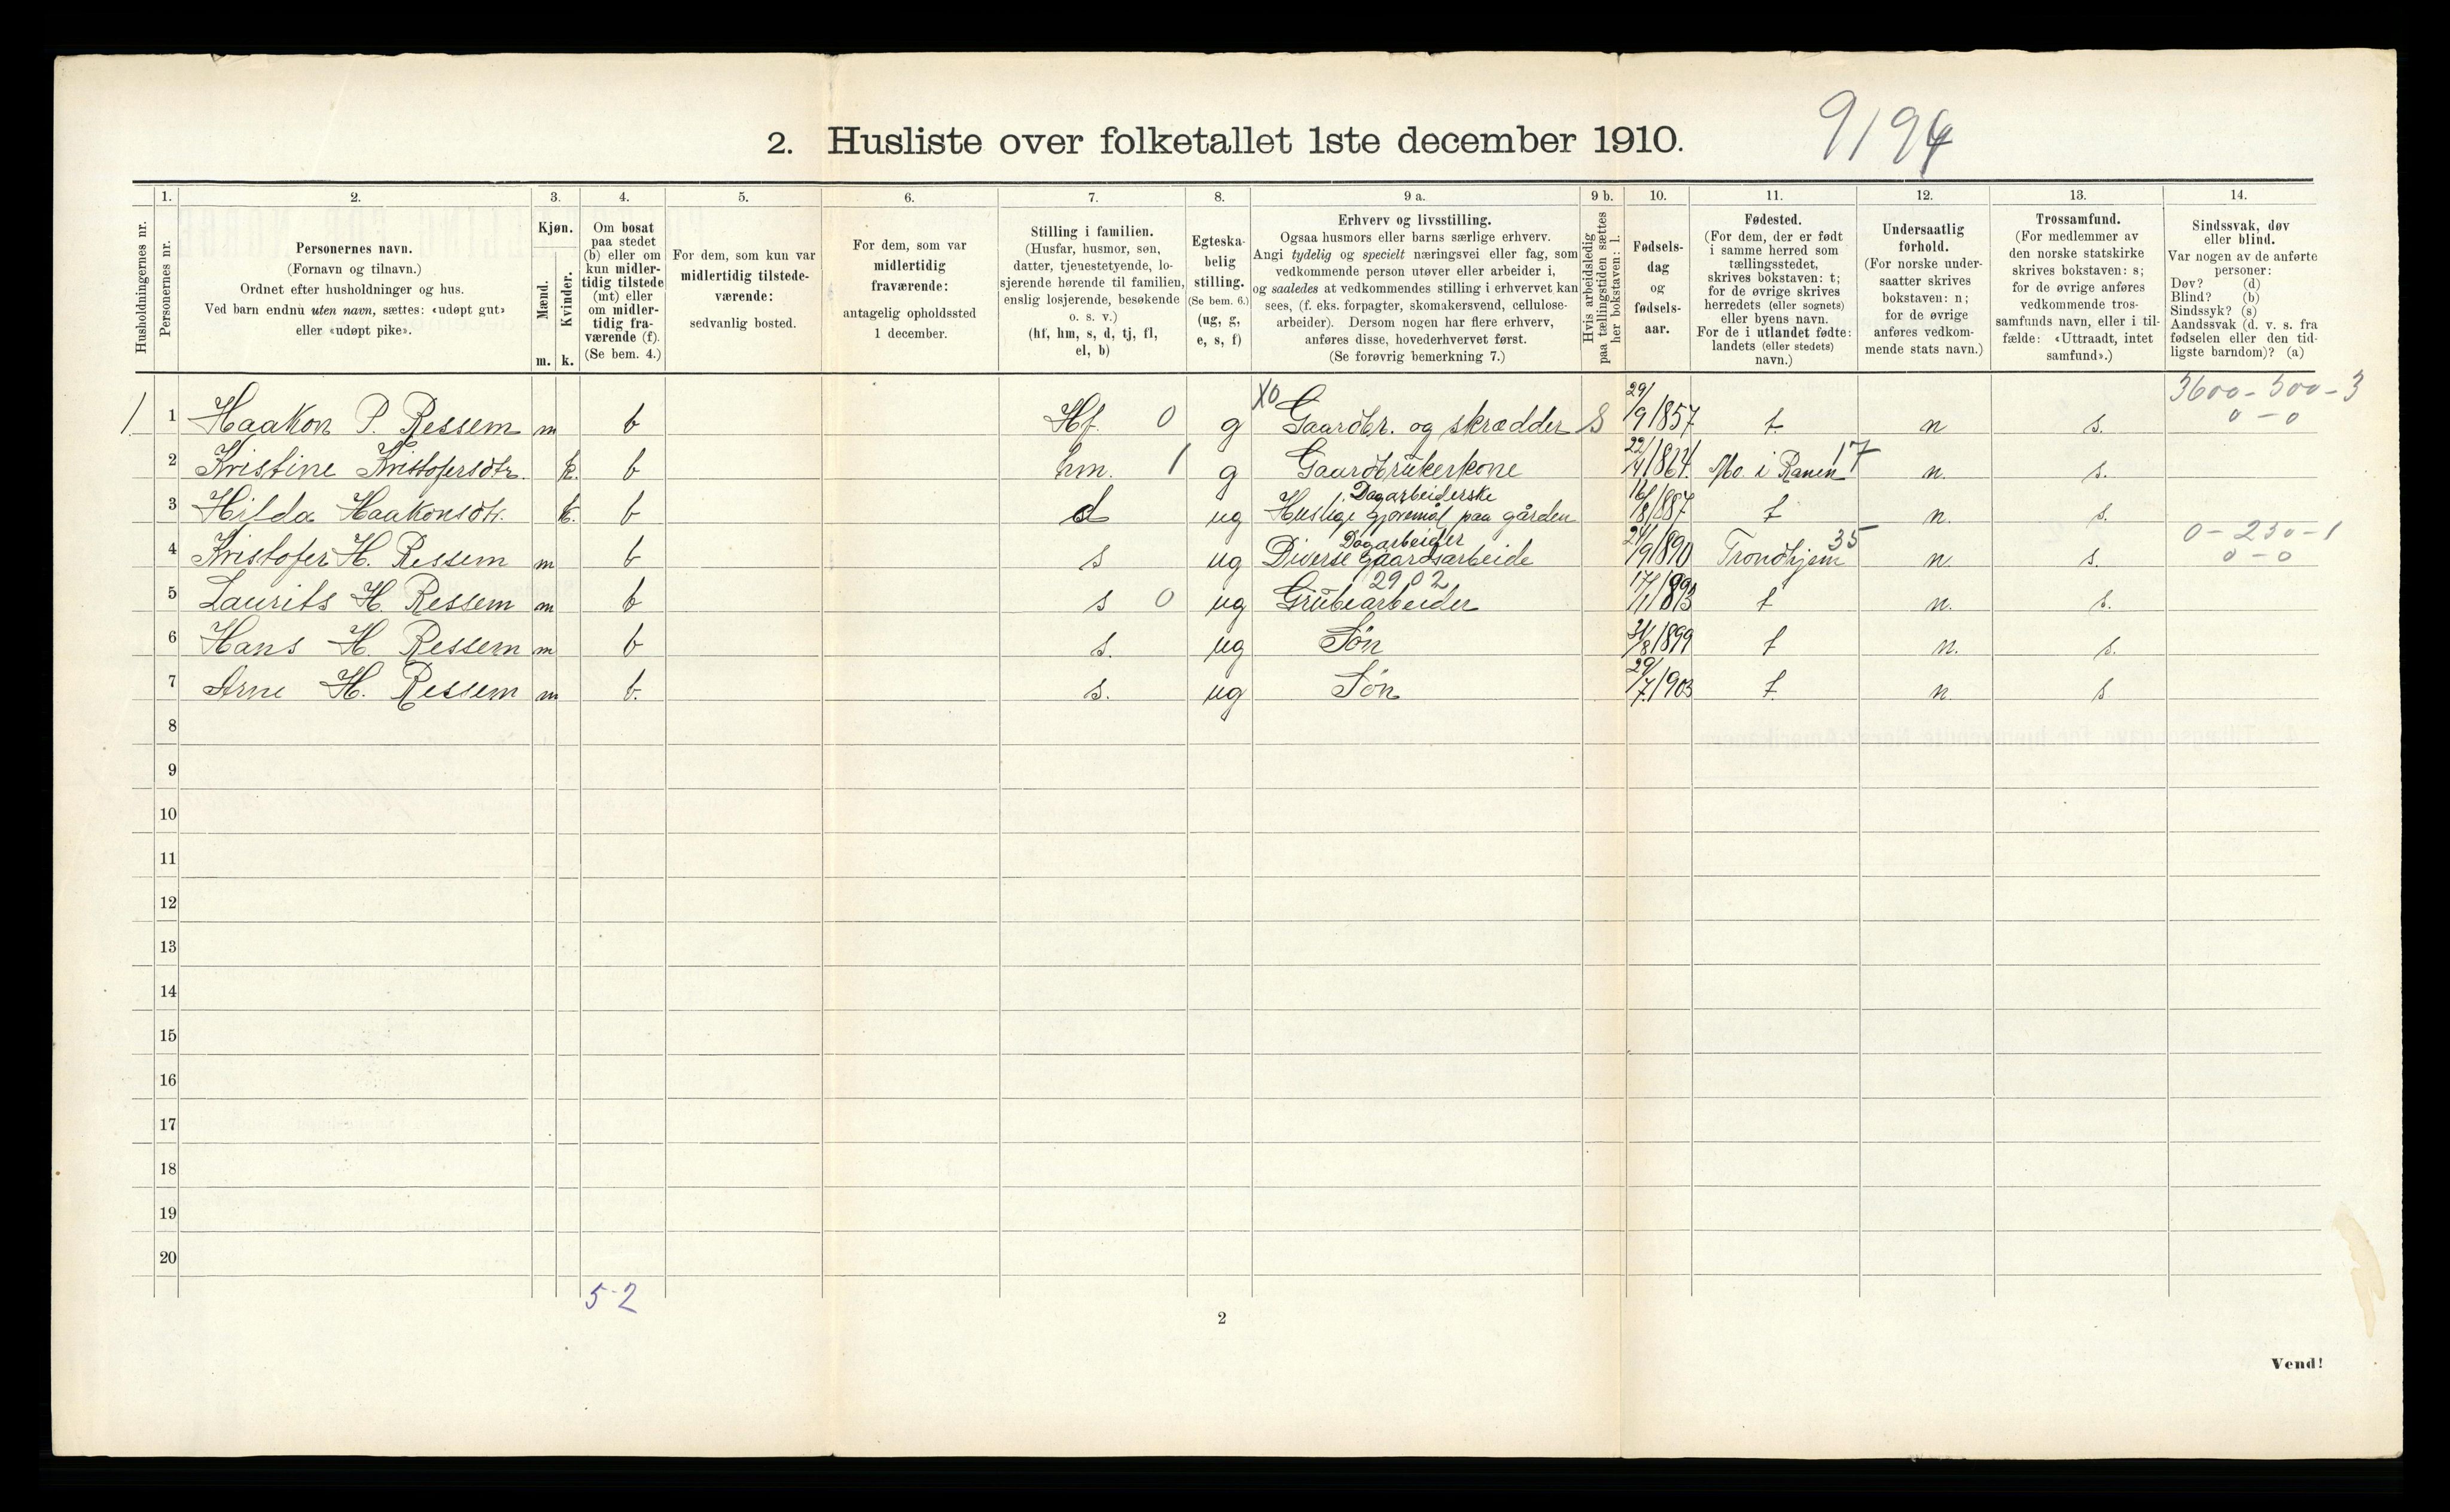 2. Husliste over folketallet 1ste december 1910.
9194
1. 2. 3. 4. 5. 6. 7. 8. 9 a. 9 b. 10. 11. 12. 13. 14.
Husholdningernes nr.
Personernes nr.
Personernes navn.
(Fornavn og tilnavn.)
Ordnet efter husholdninger og hus.
Ved barn endnu uten navn, sættes: «udøpt gut»
eller «udøpt pike».
Kjøn.
Mænd.
Kvinder.
m. k.
Om bosat
paa stedet
(b) eller om
kun midler-
tidig tilstede
(mt) eller
om midler-
tidig fra-
værende (f).
(Se bem. 4.)
For dem, som kun var
midlertidig tilstede-
værende:
sedvanlig bosted.
For dem, som var
midlertidig
fraværende:
antagelig opholdssted
1 december.
Stilling i familien.
(Husfar, husmor, søn,
datter, tjenestetyende, lo-
sjerende hørende til familien,
enslig losjerende, besøkende
o. s. v.)
(hf, hm, s, d, tj, fl,
el, b)
Egteska-
belig
stilling.
(Se bem. 6.)
(ug, g,
e, s, f)
Erhverv og livsstilling.
Ogsaa husmors eller barns særlige erhverv.
Angi tydelig og specielt næringsvei eller fag, som
vedkommende person utøver eller arbeider i,
og saaledes at vedkommendes stilling i erhvervet kan
sees, (f. eks. forpagter, skomakersvend, cellulose-
arbeider). Dersom nogen har flere erhverv,
anføres disse, hovederhvervet først.
(Se forøvrig bemerkning 7.)
Hvis arbeidsledig
paa tællingstiden sættes
her bokstaven: l.
Fødsels-
dag
og
fødsels-
aar.
Fødested.
(For dem, der er født
i samme herred som
tællingsstedet,
skrives bokstaven: t;
for de øvrige skrives
herredets (eller sognets)
eller byens navn.
For de i utlandet fødte:
landets (eller stedets)
navn.)
Undersaatlig
forhold.
(For norske under-
saatter skrives
bokstaven: n;
for de øvrige
anføres vedkom-
mende stats navn.)
Trossamfund.
(For medlemmer av
den norske statskirke
skrives bokstaven: s;
for de øvrige anføres
vedkommende tros-
samfunds navn, eller i til-
fælde: «Uttraadt, intet
samfund».)
Sindssvak, døv
eller blind.
Var nogen av de anførte
personer:
Døv? (d)
Blind? (b)
Sindssyk? (s)
Aandssvak (d. v. s. fra
fødselen eller den tid-
ligste barndom)? (a)
X0 3600 - 500 - 3
1 1 Haakon P. Ressem m b Hf. 0 g Gaardbr. og skrædder S 29/9 1857 t. n s. 0 - 0
2 Kristine Kristofersdtr. k. b hm. 1 g Gaardbrukerkone 22/4 1864. Mo. i Ranen 17 n. s.
Dagarbeiderske
3 Hilda Haakonsdtr. k. b d ug Huslige gjøremål paa gården 16/8 1887 t n. s.
Dagarbeider 35 0 - 230 - 1
4 Kristofer H. Ressem m b s ug Diverse gaardsarbeide 24/9 1890 Trondhjem n. s. 0 - 0
2902
5 Laurits H. Ressem m b s 0 ug Grubearbeider 17/1 1893 t n. s.
6 Hans H. Ressem m b s. ug Søn 31/8 1899 t n. s.
7 Arne H. Ressem m b. s. ug Søn 29/7 1903 t. n. s
8
9
10
11
12
13
14
15
16
17
18
19
20
5-2
2
Vend!